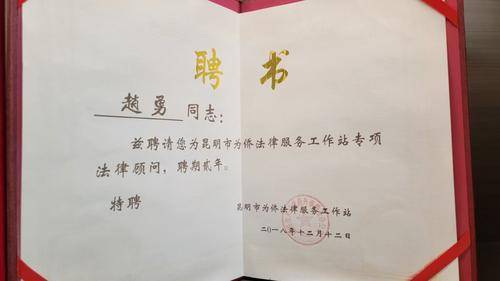 聘书
趙勇 同志：
兹聘请您为昆明市为侨法律服务工作站专项
法律顾问，聘期贰年。
特聘
昆明市为侨法律服务工作站
二〇一八年十二月十二日